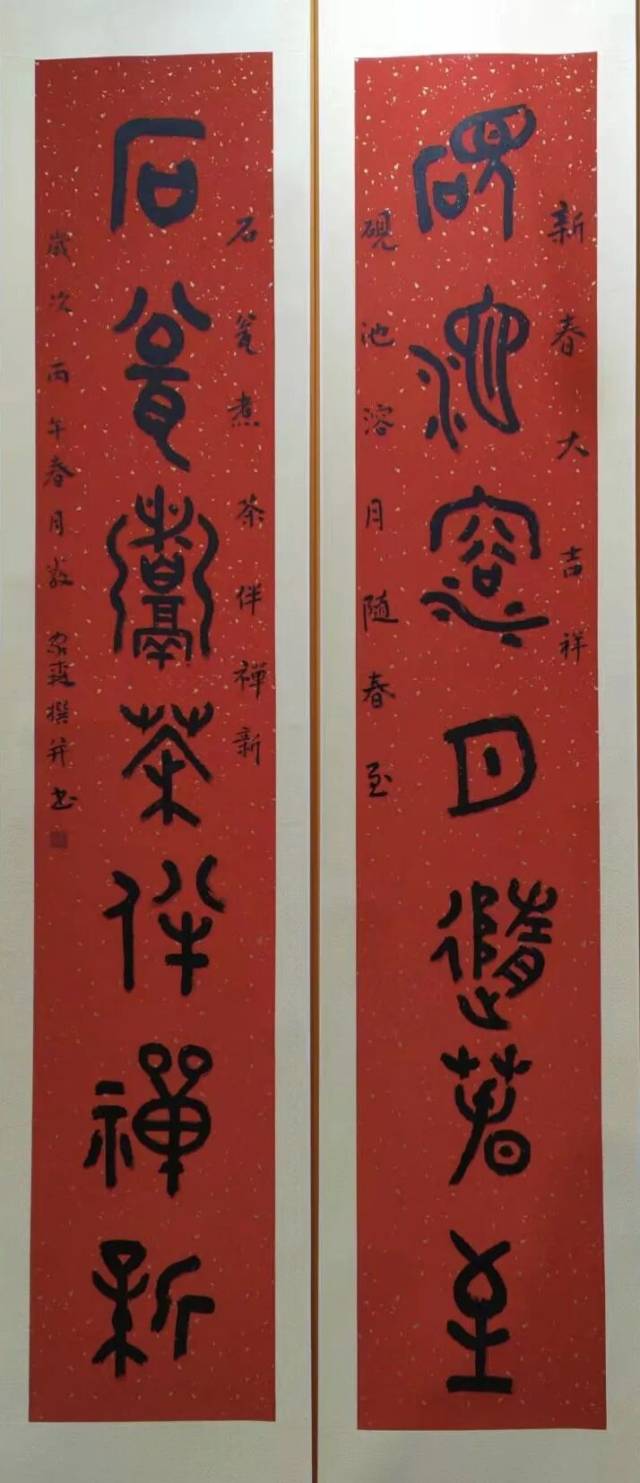 新春大吉祥
硯池溶月隨春至
硯池溶月随春至
石瓮煮茶伴禪新
石瓮煮茶伴禪新
歲次丙午春月 家森撰并书